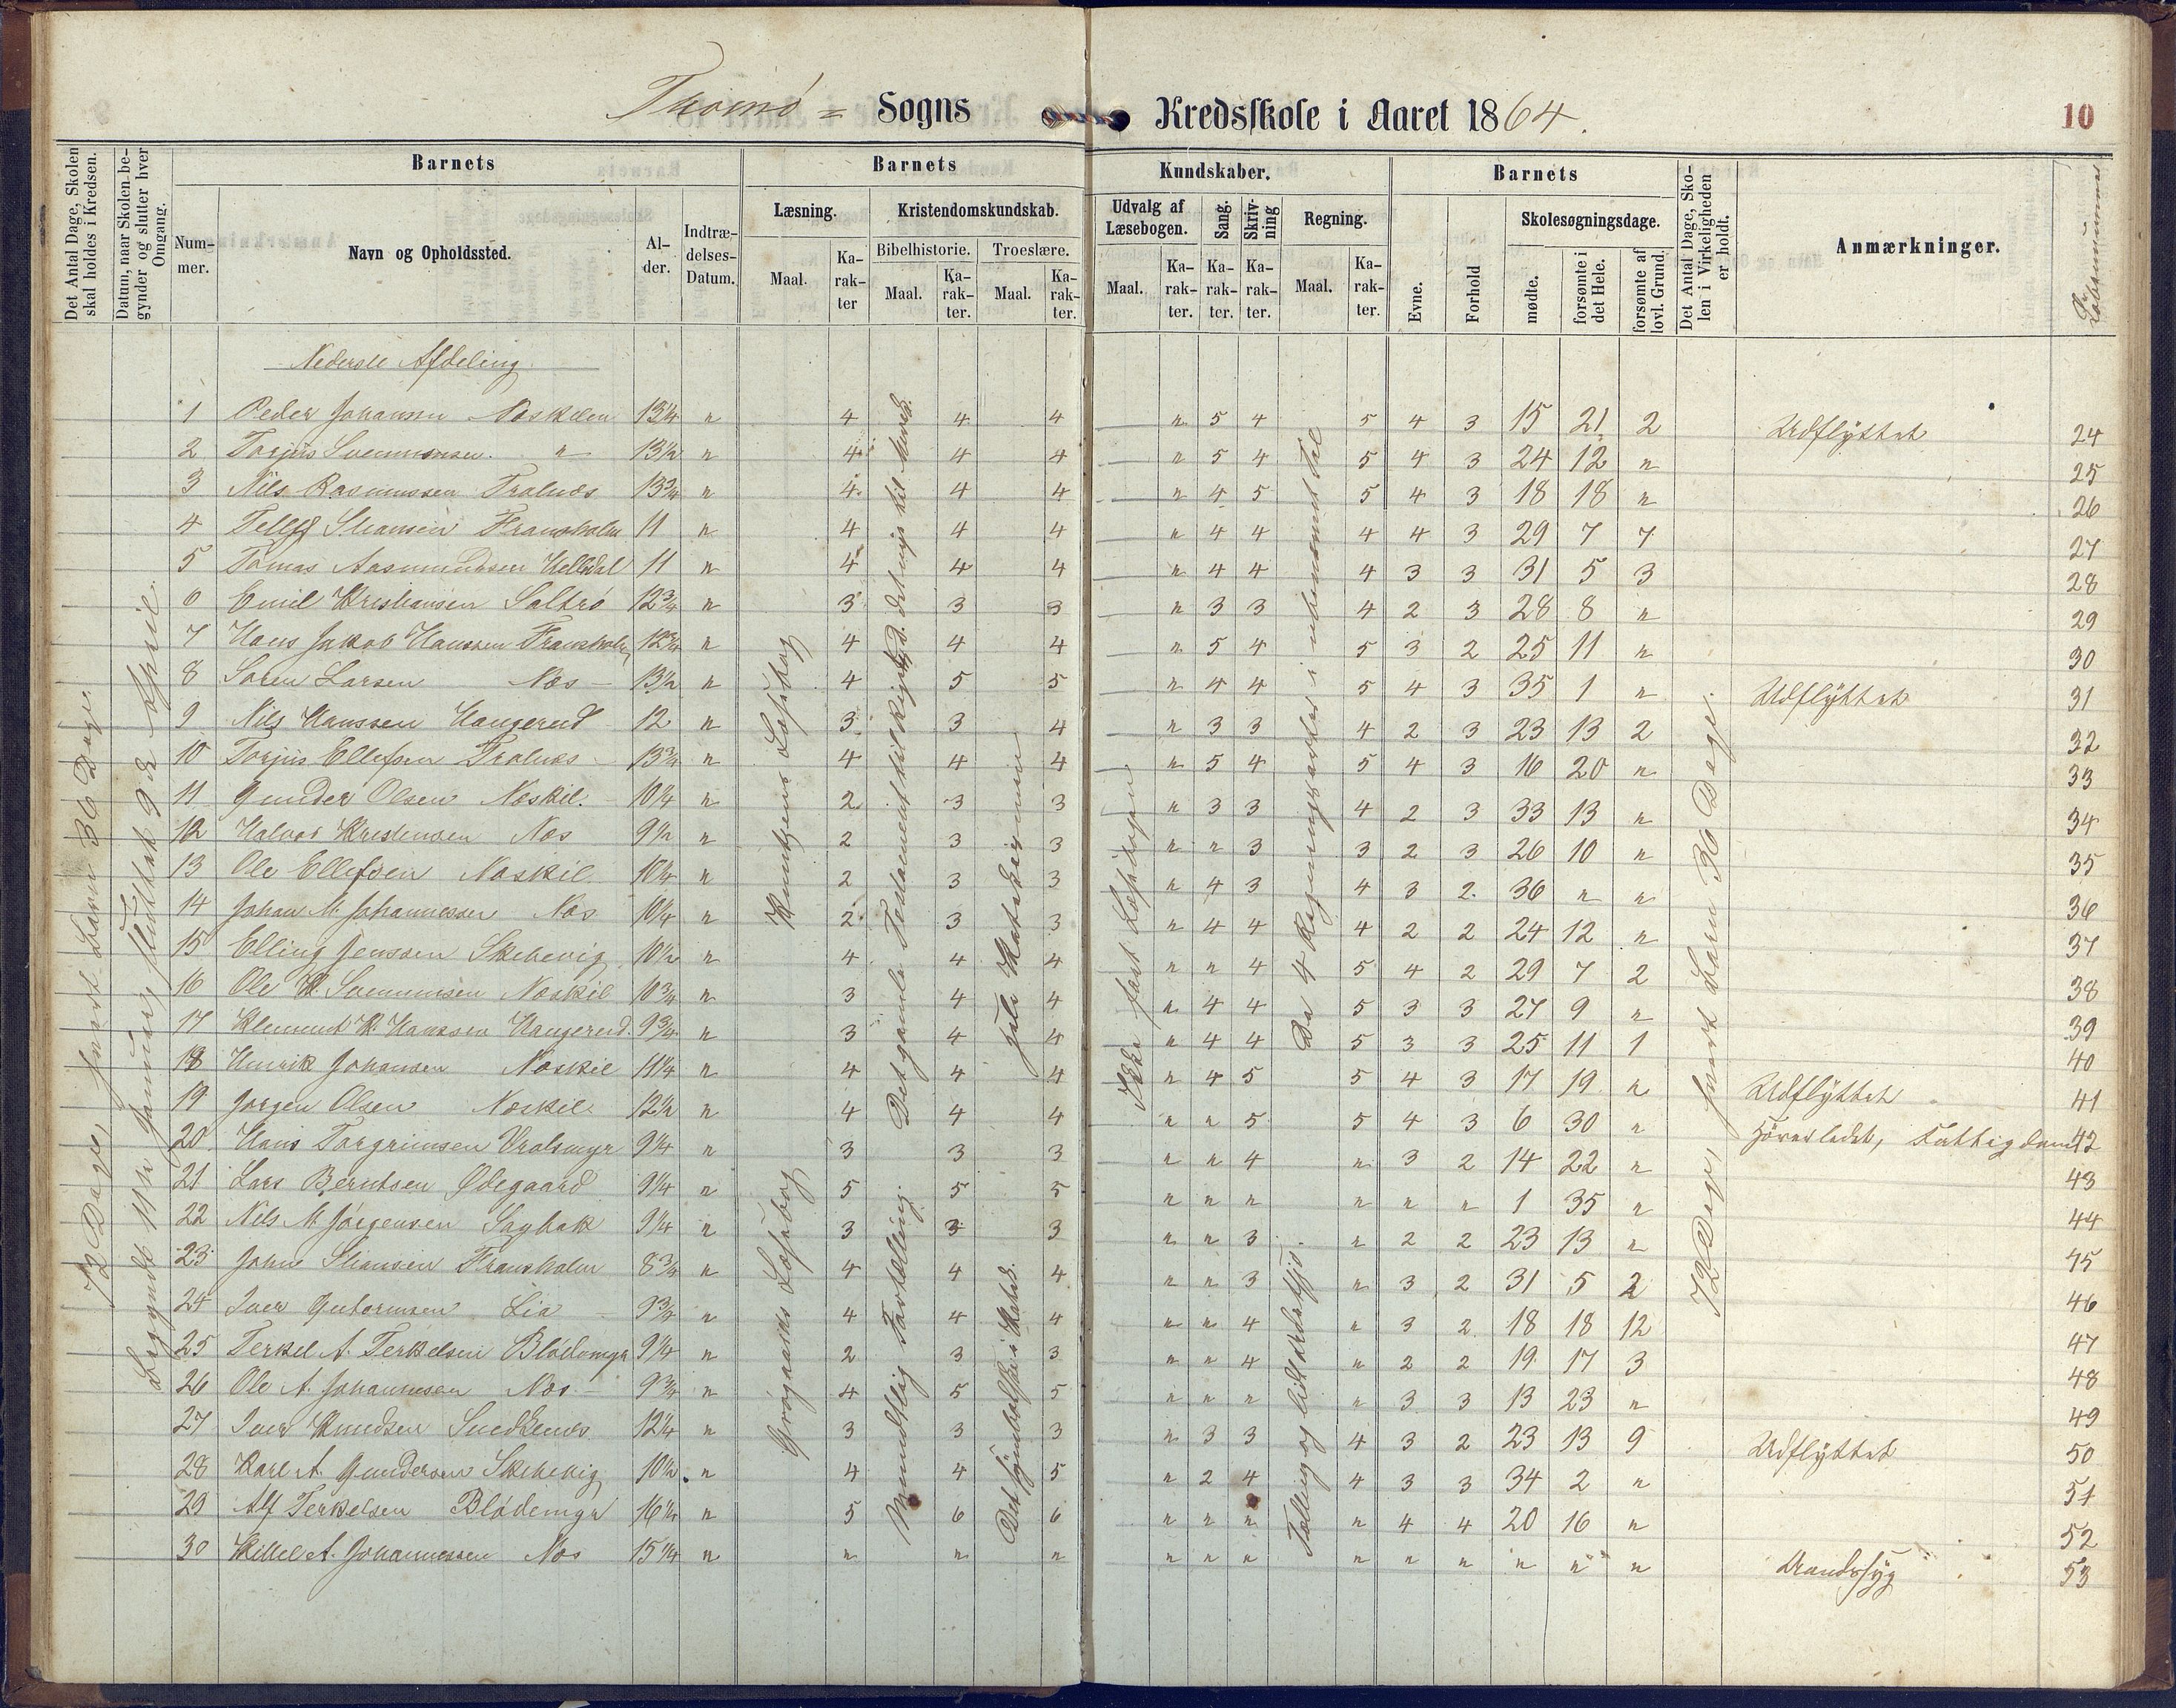 Tromø = Sogns Kredsskole i Aaret 1864.
10
Det Antal Dage, Skolen skal holdes i Kredsen.
Datum, naar Skolen begynder og slutter hver Omgang.
Barnets
Nummer.
Navn og Opholdssted.
Alder.
Indtrædelses-Datum.
Barnets Kundskaber.
Læsning.
Maal.
Karakter
Kristendomskundskab.
Bibelhistorie.
Maal.
Karakter.
Troeslære.
Maal.
Karakter.
Udvalg af Læsebogen.
Maal.
Karakter.
Sang.
Karakter.
Skrivning
Karakter.
Regning.
Maal.
Karakter.
Barnets
Evne.
Forhold
Skolesøgningsdage.
mødte.
forsømte i det Hele.
forsømte af lovl. Grund.
Det Antal Dage, Skolen i Virkeligheden er holdt.
Anmærkninger.
Løbenummer
72 Dage, hvert Barn 36 Dage.
Begyndt 11te Januar, sluttet 9de April.
Nederste Afdeling
1 Peder Johansen Næskilen 13 1/4 " 4 4 4 " 5 4 5 4 3 15 21 2 Udflyttet 24
2 Torjus Svennonsen " 13 1/2 " 4 4 4 " 5 4 5 4 3 24 12 " 25
3 Nils Rasmussen Tralnes 13 3/4 " 4 4 4 " 4 5 5 4 3 18 18 " 26
4 Tellef Stiansen Fransholm 11 " 4 4 4 " 4 4 4 4 3 29 7 7 27
5 Tomas Aasmundsen Helledal 11 " 4 4 4 " 4 4 4 3 3 31 5 3 28
6 Emil Kristiansen Saltrø 12 3/4 " 3 3 3 " 3 3 4 2 3 28 8 " 29
7 Hans Jakob Hanssen Fransholm 12 3/4 " 4 4 4 " 5 4 5 3 2 25 11 " 30
8 Søren Larsen Næs 13 1/2 " 4 5 5 " 4 4 5 4 3 35 1 " Udflyttet 31
9 Nils Hanssen Haugerud 12 " 3 3 4 " 3 3 4 2 3 23 13 2 32
10 Torjus Ellefsen Tralnes 13 3/4 " 4 4 4 " 5 4 5 4 3 16 20 " 33
11 Gunder Olsen Næskil. 10 1/4 " 2 3 3 " 3 3 4 2 3 33 13 " 34
12 Halvor Kristensen Næs 9 1/2 " 2 3 3 " " 3 3 2 3 26 10 " 35
13 Ole Ellefsen Næskil. 10 1/4 " 2 3 3 " 4 3 4 3 2 36 " " 36
14 Johan M. Johannessen Næs 10 1/4 " 2 3 3 " 4 4 4 2 2 24 12 " 37
15 Elling Jenssen Skibevig 10 1/2 " 4 4 4 " " 4 5 4 2 29 7 2 38
16 Ole K. Svennnsen Næskil 10 3/4 " 3 4 4 " 4 4 5 3 3 27 9 " 39
17 Klement K. Hanssen Haugerud. 9 3/4 " 3 4 4 " 4 4 5 3 3 25 11 1 40
18 Henrik Johansen Næskil 11 1/4 " 4 4 4 " 4 5 5 4 3 17 19 " Udflyttet 41
19 Jørgen Olsen Næskil. 12 1/2 " 4 4 4 " " 5 5 4 3 6 30 " Fattigdom 42
20 Hans Torgrimsen Vralsmyr 9 1/4 " 3 3 3 " " 4 " 3 2 14 22 " 43
21 Lars Berntsen Ødegaard 9 1/4 " 5 5 5 " " " " " " 1 35 " 44
22 Nils M Jørgensen Sagbak 9 1/4 " 3 3 3 " " 3 " 2 2 23 13 " 45
23 John Stiansen Fransholm 8 3/4 " 4 4 4 " " 3 " 3 2 31 5 2 46
24 Iver Gutormsen Lia 9 3/4 " 4 4 4 " " 4 " 3 2 18 18 12 47
25 Terkel A. Terkelsen Blødemyr 9 1/4 " 2 3 3 " " 4 " 2 2 19 17 3 48
26 Ole A. Johannesen Næs 9 3/4 " 4 5 5 " " " " 3 3 13 23 " 49
27 Iver Knudsen Snedkenes 12 1/4 " 3 3 3 " 3 3 4 3 2 23 13 9 Udflyttet 50
28 Karl A. Gundersen Skibevig 10 1/2 " 4 4 5 " 2 4 4 3 3 34 2 " 51
29 Alf Terkelsen Blødemyr 16 1/4 " 5 6 6 " " " " 4 4 20 16 " 52
30 Kittel A. Johannessen Næs 15 1/4 " " " " " " " " " " " " " 53
Grøgaards Læsebog
Mundtlig Fortælling.
Ikke fast Læsebogen
De 4 Regningsarter i ubenævnt Tal
72 Dage, hvert Barn 36 Dage.